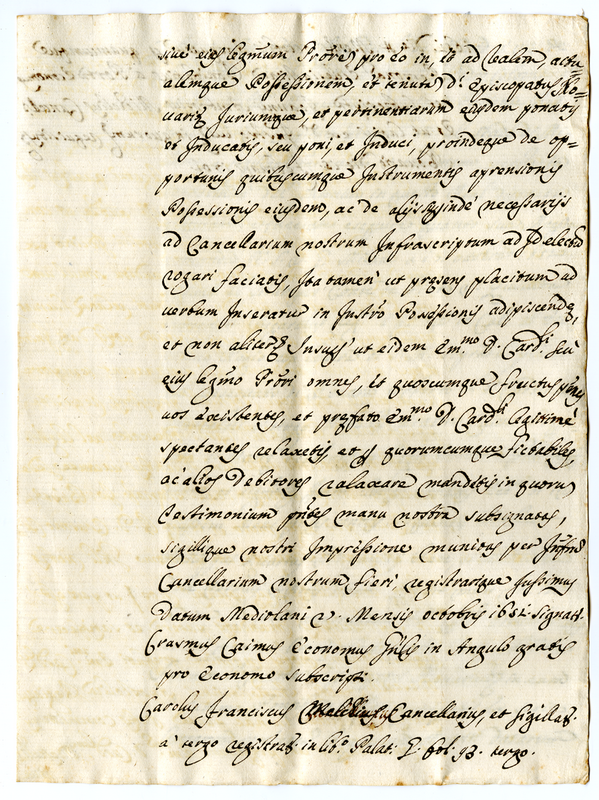 sive eius legitimum Prõrẽ pro eo in, et ad realem, actu
alemque Possessionem, et tenutã D.ⁱ Episcopatus No=
variẽ Juriumque, et pertinentiarum eiusdem ponatis
et Inducatis, seu poni, et Induci, proindeque de op=
portunis quibuscumque Instrumentis aprensionis
Possessionis eiusdem, ac de alijs exindè necessarijs
ad Cancellarium nostrum Infrascriptum ad
rogari faciatis, Ita tamen ut præsens placitum ad
verbum Inseratur in Instrõ Possessionis adipiscendę,
et non aliter, Insup ut eidem Em.mo D. Card.li seu
eius legmo Prõri omnes, et quoscumque fructus penes
vos existentes, et prefato Em.mo D. Card.li legitimè
spectantes relaxetis, et quorumcumque fictabiles,
ac alios Debitores relaxare mandetis in quorũ
testimonium pñtes manu nostra subsignatas,
sigillique nostri Impressione munitas per Infrũm
Cancellarium nostrum fieri, registrarique Iussimus
Datum Mediolani Mensis octobris 1651. signat.
Erasmus Caimus Economus gñlis in Angulo gratis
pro Economo subscript.
Carolus Franciscus Cancellarius, et sigillat.
a tergo registrat. in lib.o Palat. fol. 93. tergo.